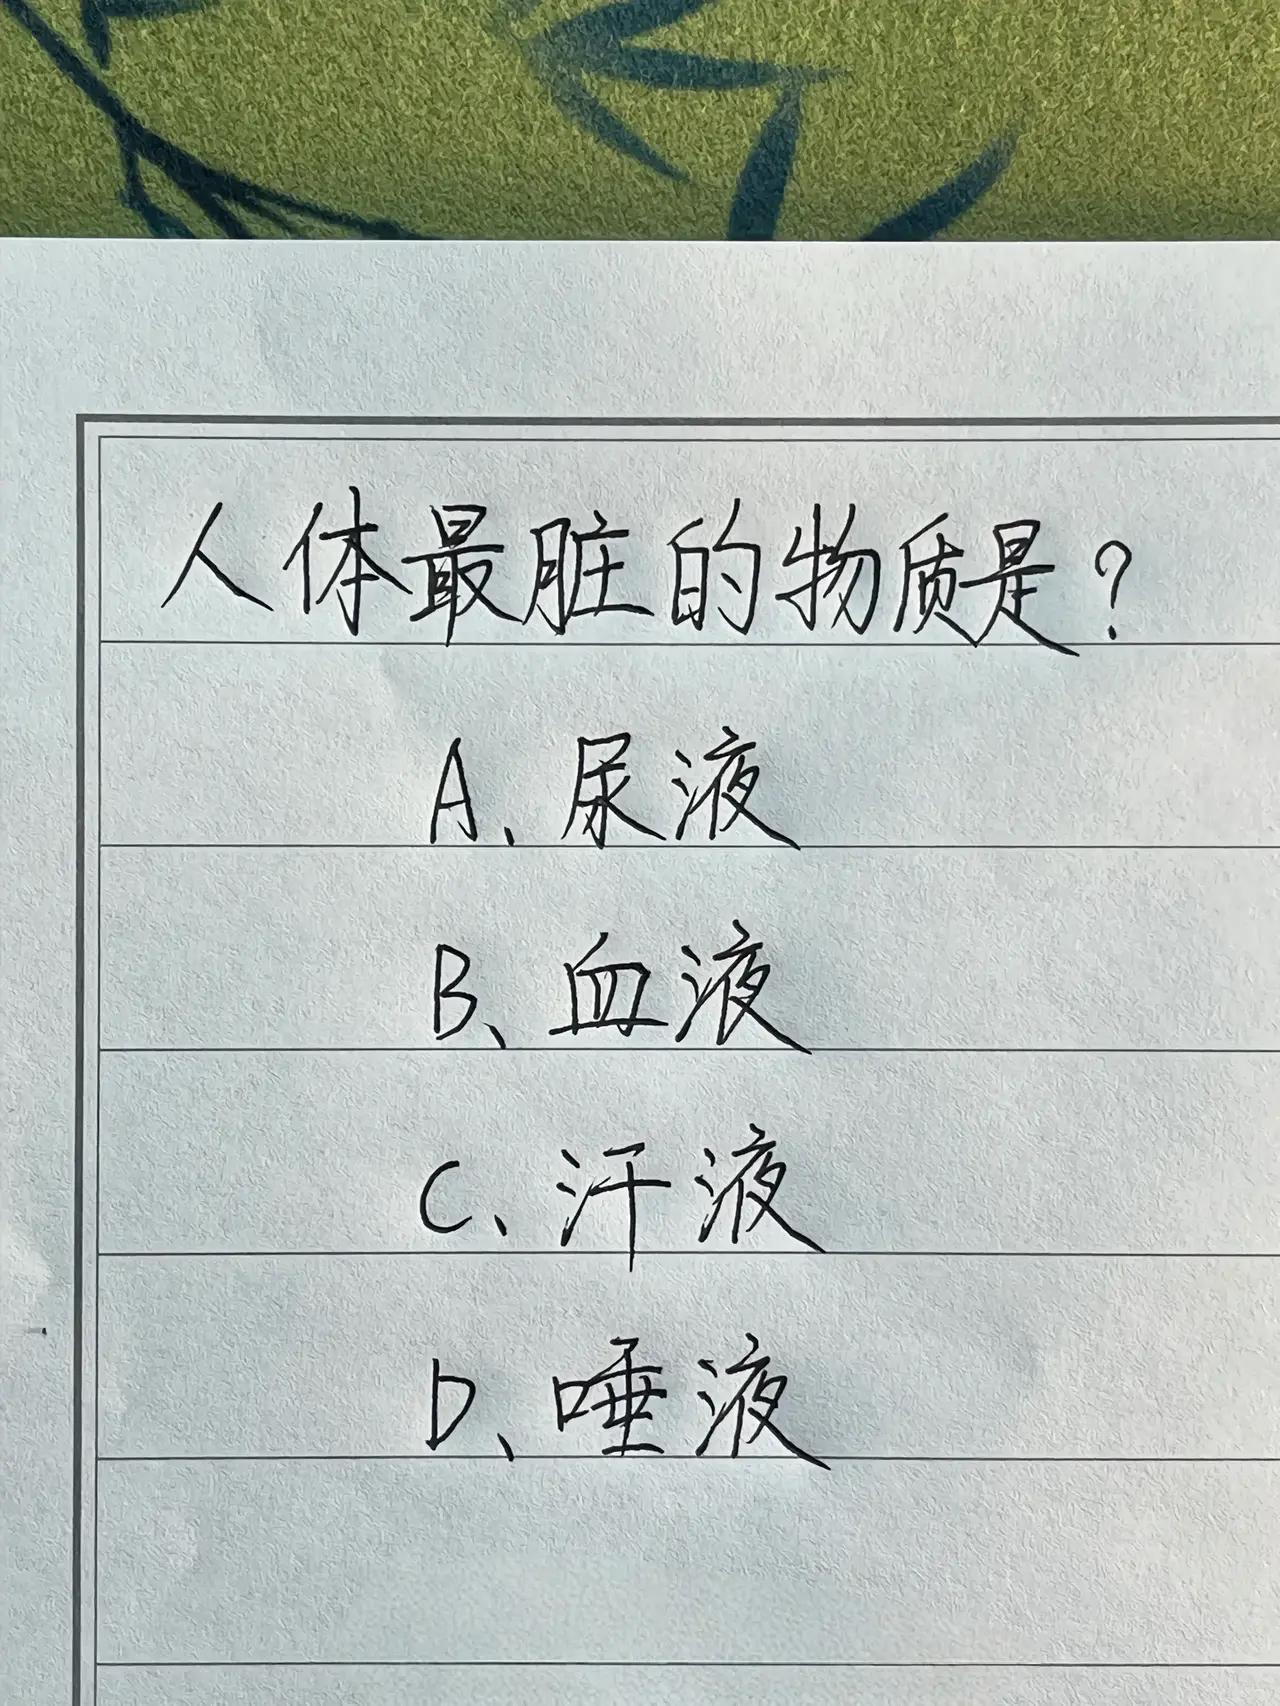 人体最脏的物质是?
A、尿液
B、血液
C、汗液
D、唾液